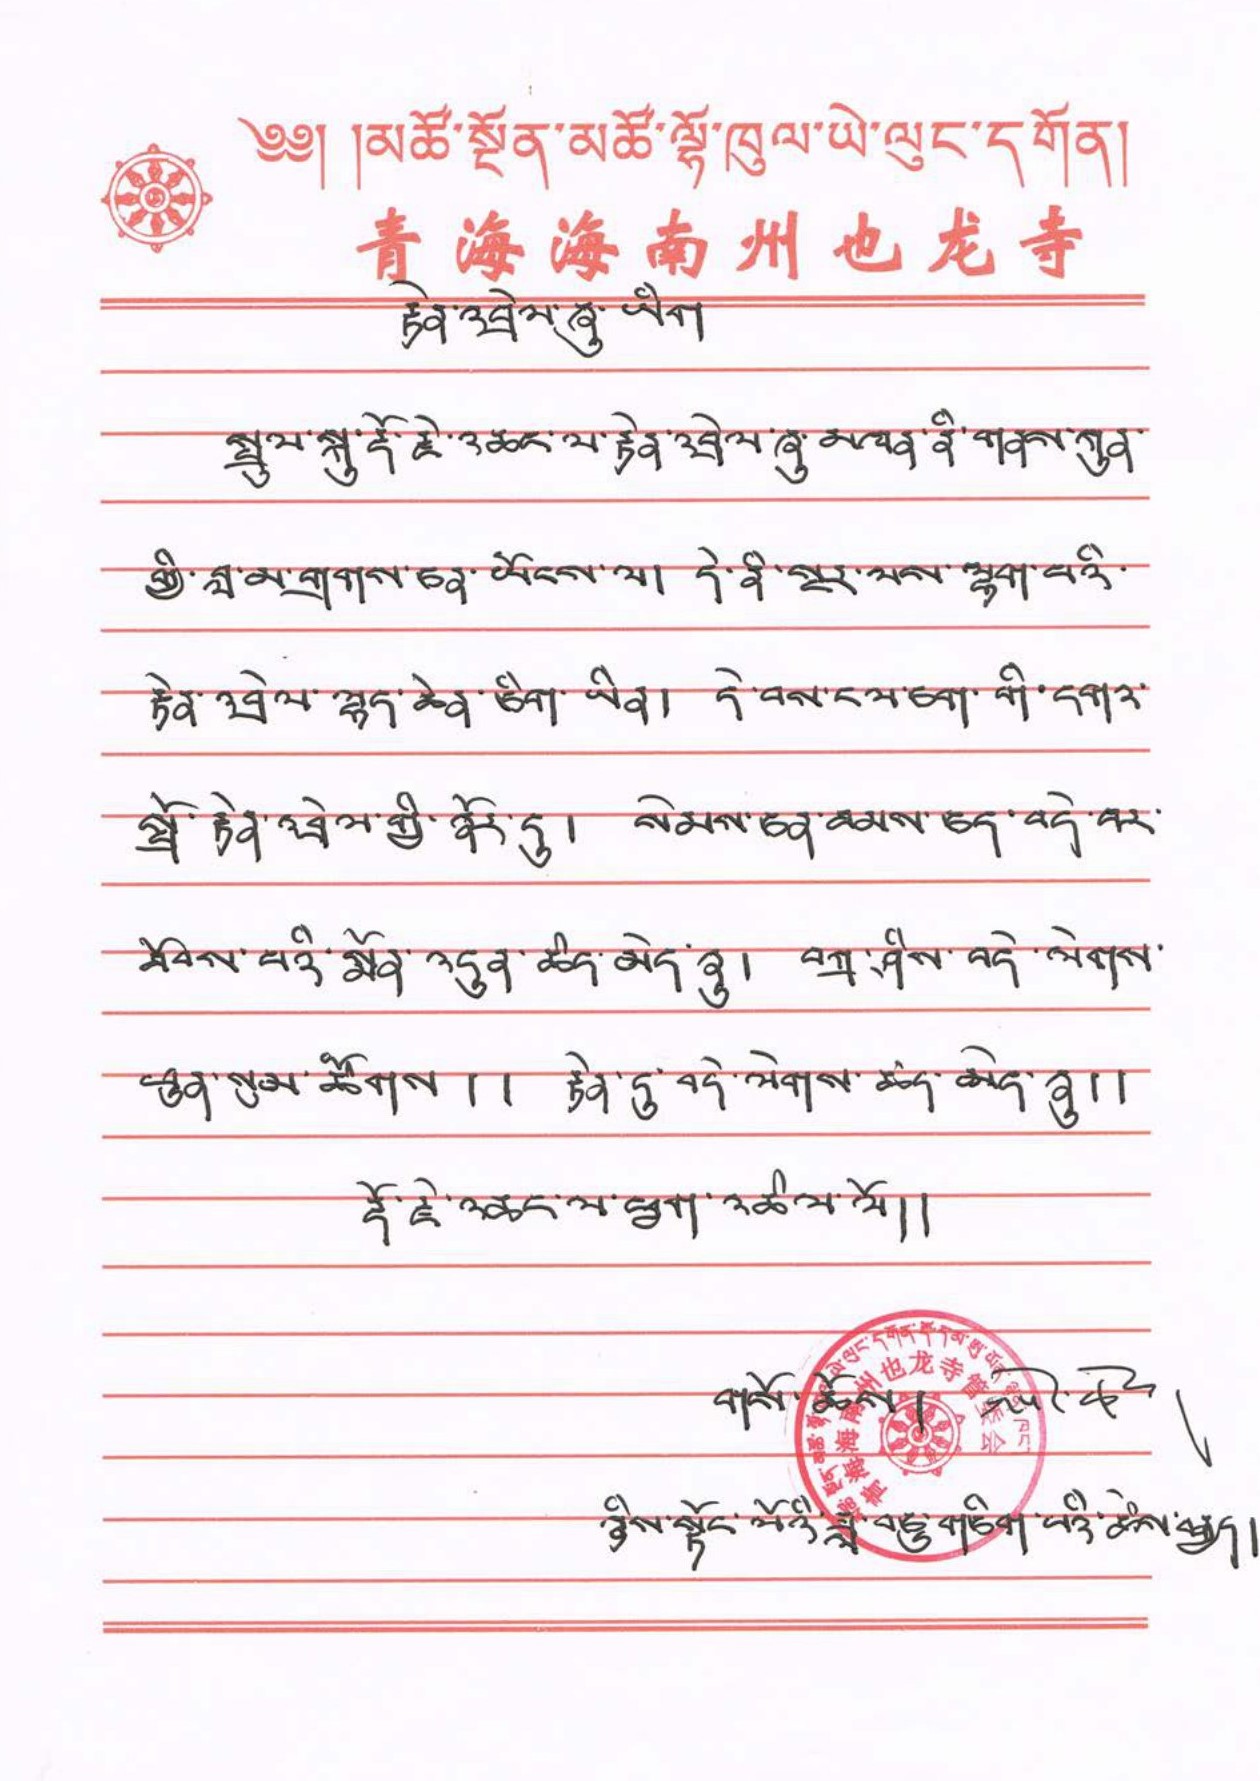 ༄༅། །མཚོ་སྔོན་མཚོ་ལྷོ་ཁུལ་ཡེ་ལུང་དགོན།
青海海南州也龙寺
རྟེན་འབྲེལ་ཞུ་ཡིག
སྤྲུལ་སྐུ་རྡོ་རྗེ་འཆང་ལ་རྟེན་འབྲེལ་ཞུ་མཁན་ནི་གནས་ཀུན་
གྱི་བླ་མ་གྲགས་ཅན་ཡོངས་ལ། དེ་ནི་སྔར་ལས་ལྷག་པའི་
རྟེན་འབྲེལ་ཁྱད་ཆེན་ཅིག་ཡིན། དེ་བས་ང་ལ་ཅག་གི་དགའ་
སྤྲོ་རྟེན་འབྲེལ་གྱི་ངོར་དུ། སེམས་ཅན་ཐམས་ཅད་བདེ་བར་
ཐོབས་པའི་སྨོན་འདུན་ཚད་མེད་ཞུ། བཀྲ་ཤིས་བདེ་ལེགས་
ཕུན་སུམ་ཚོགས།། རྟེན་དུ་བདེ་ལེགས་ཚད་མེད་ཞུ།།
རྡོ་རྗེ་འཆང་ལ་ཕྱག་འཚལ་ལོ།།
གསོ་ཚོས།
ཉིས་སྟོང་ལོའི་ཟླ་བཅུ་གཅིག་པའི་ཚེས་
青海海南州也龙寺管委会